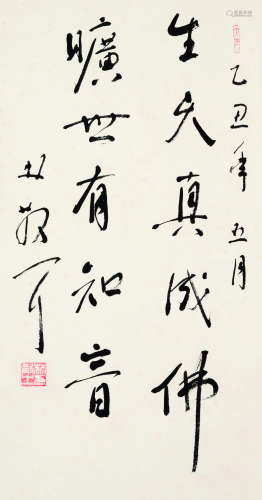 乙丑年五月
生天真成佛
曠世有知音
林散耳